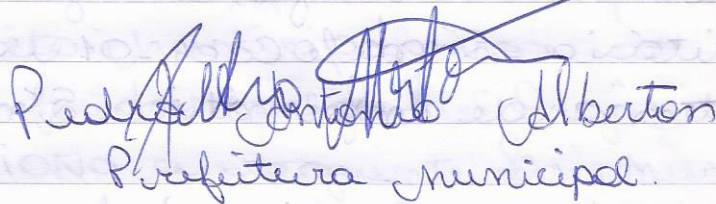 Pedro Antonio Alberton
Prefeitura Municipal.